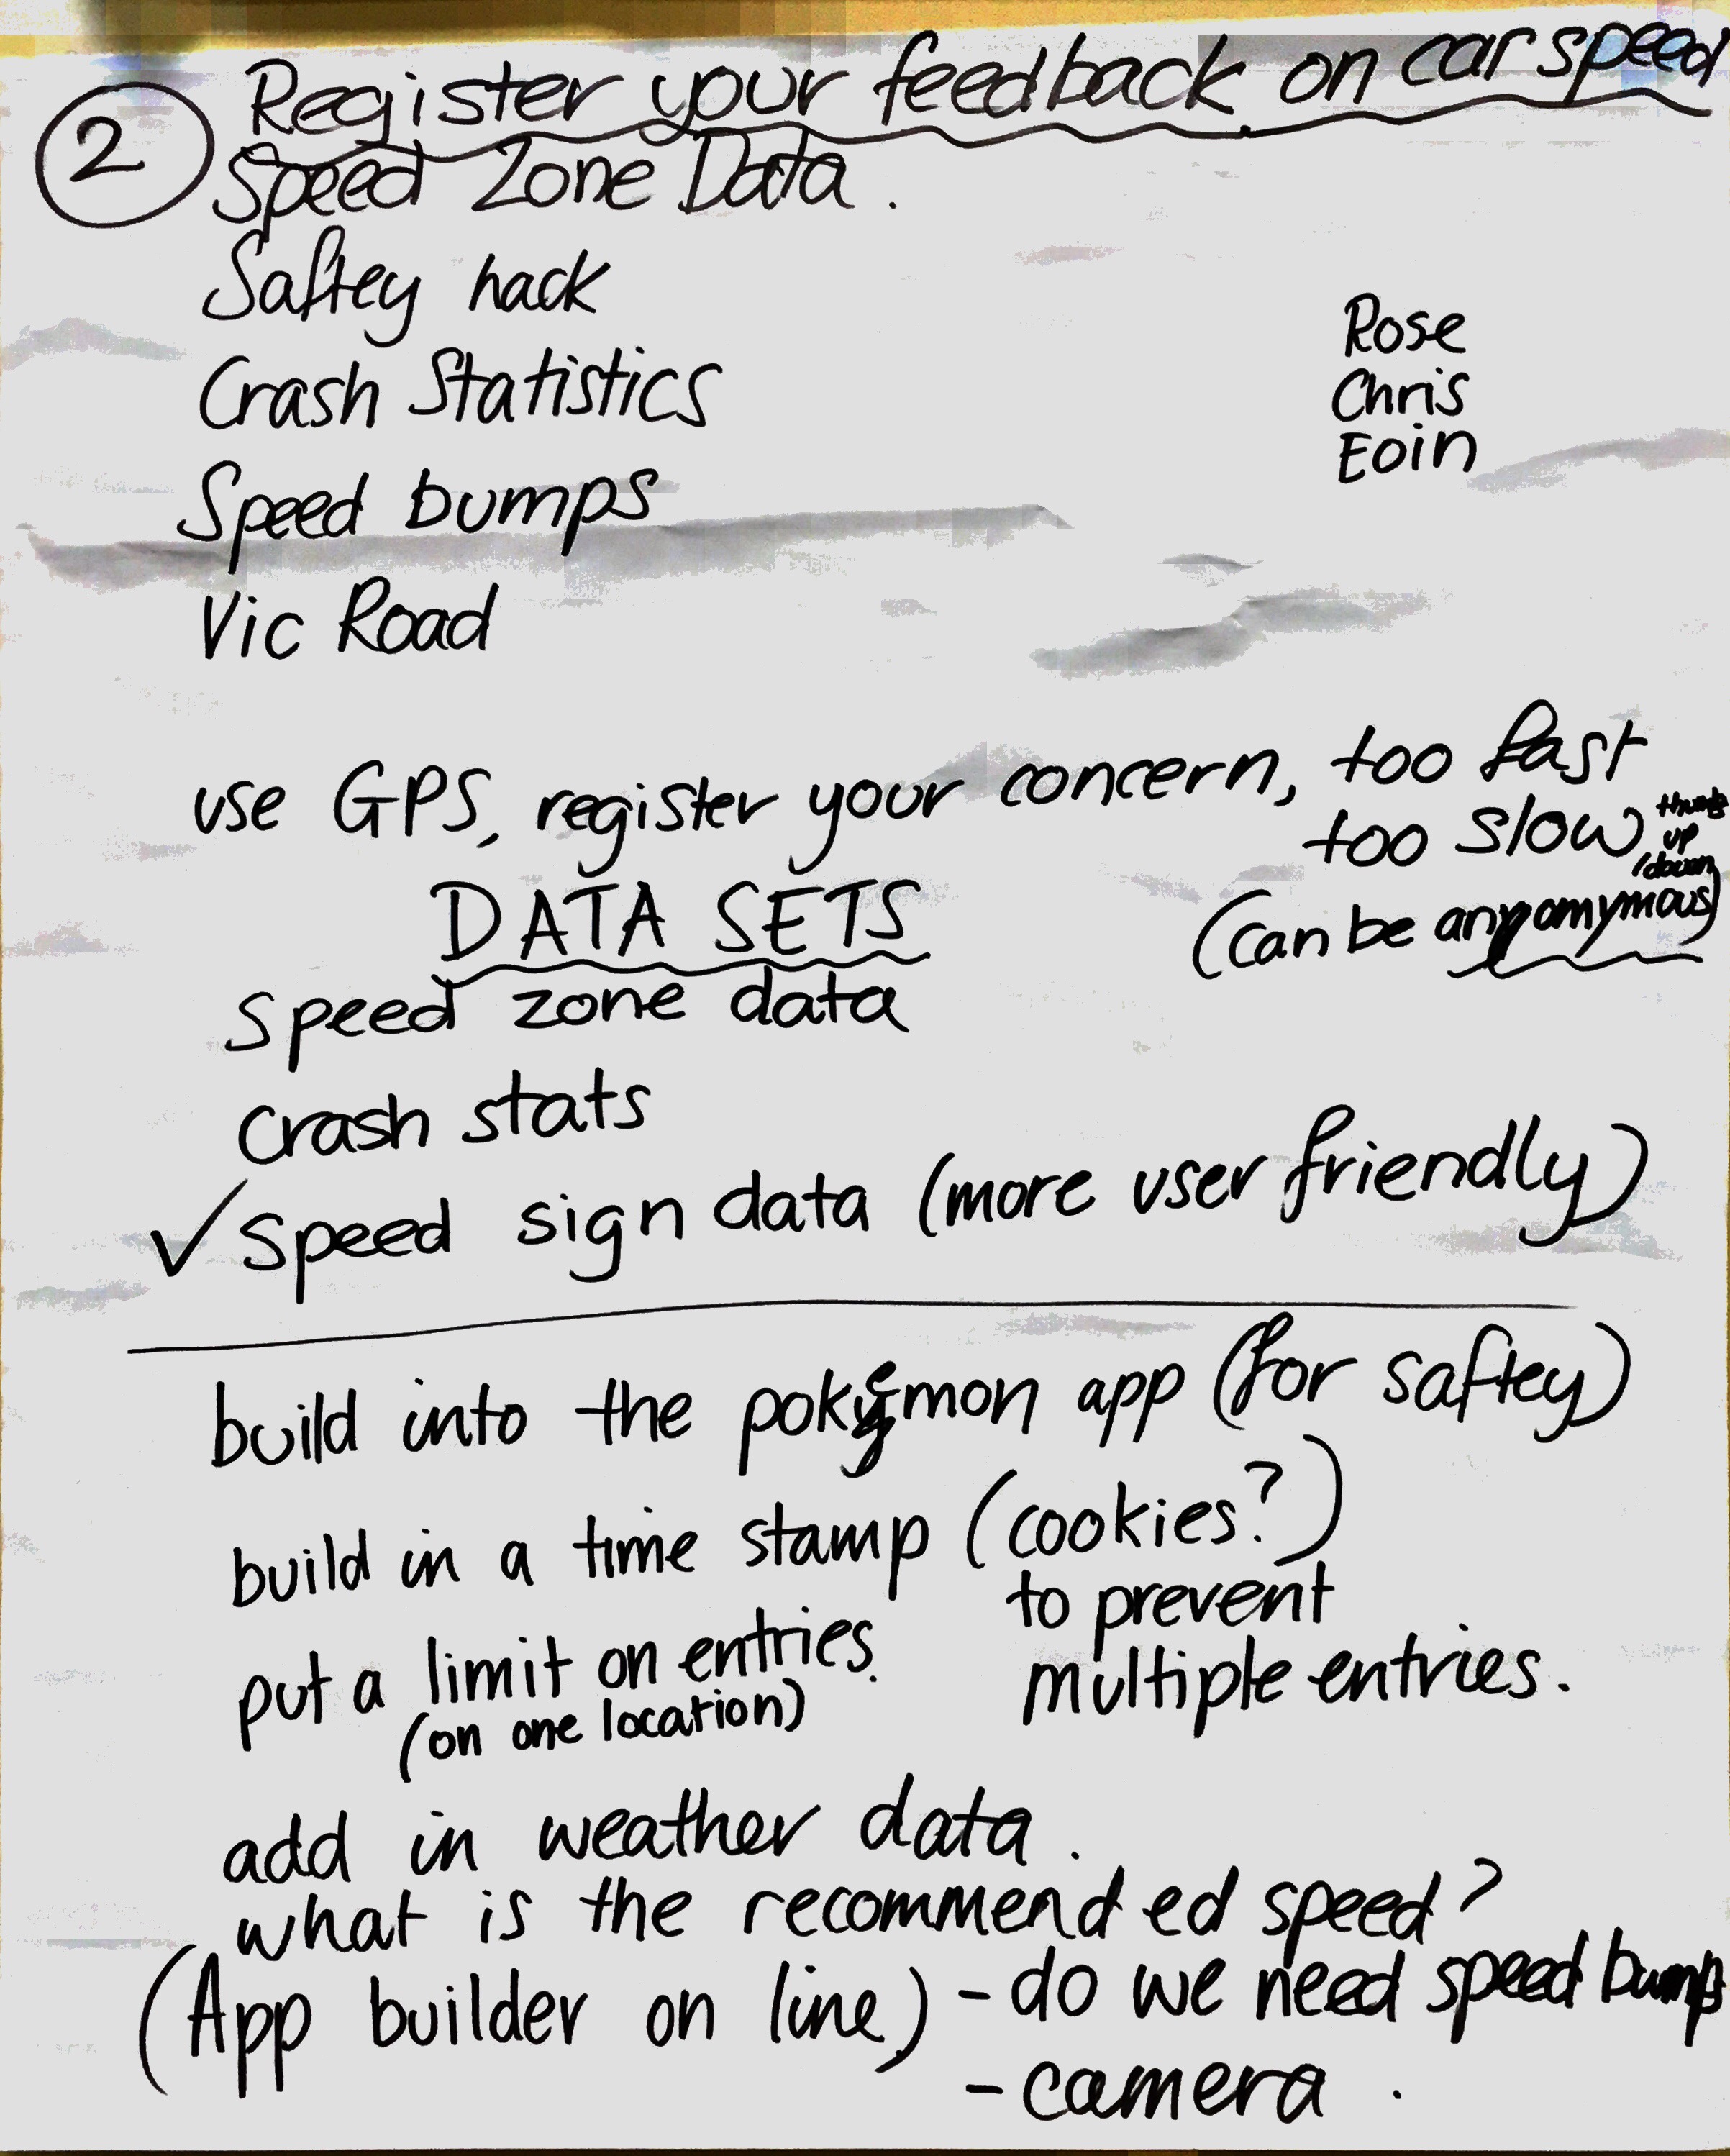 ② Register your feedback on car speed
Speed Zone Data.
Saftey hack
Crash Statistics
Speed bumps
Vic Road
Rose
Chris
Eoin
use GPS, register your concern, too fast
too slow thumbs
up
/down
(can be anyomymous)
DATA SETS
speed zone data
crash stats
✓ speed sign data (more user friendly)
build into the pokemon app (for saftey)
build in a time stamp (cookies?)
to prevent
multiple entries.
put a limit on entries.
(on one location)
add in weather data.
what is the recommended speed?
(App builder on line) - do we need speed bumps
- camera.